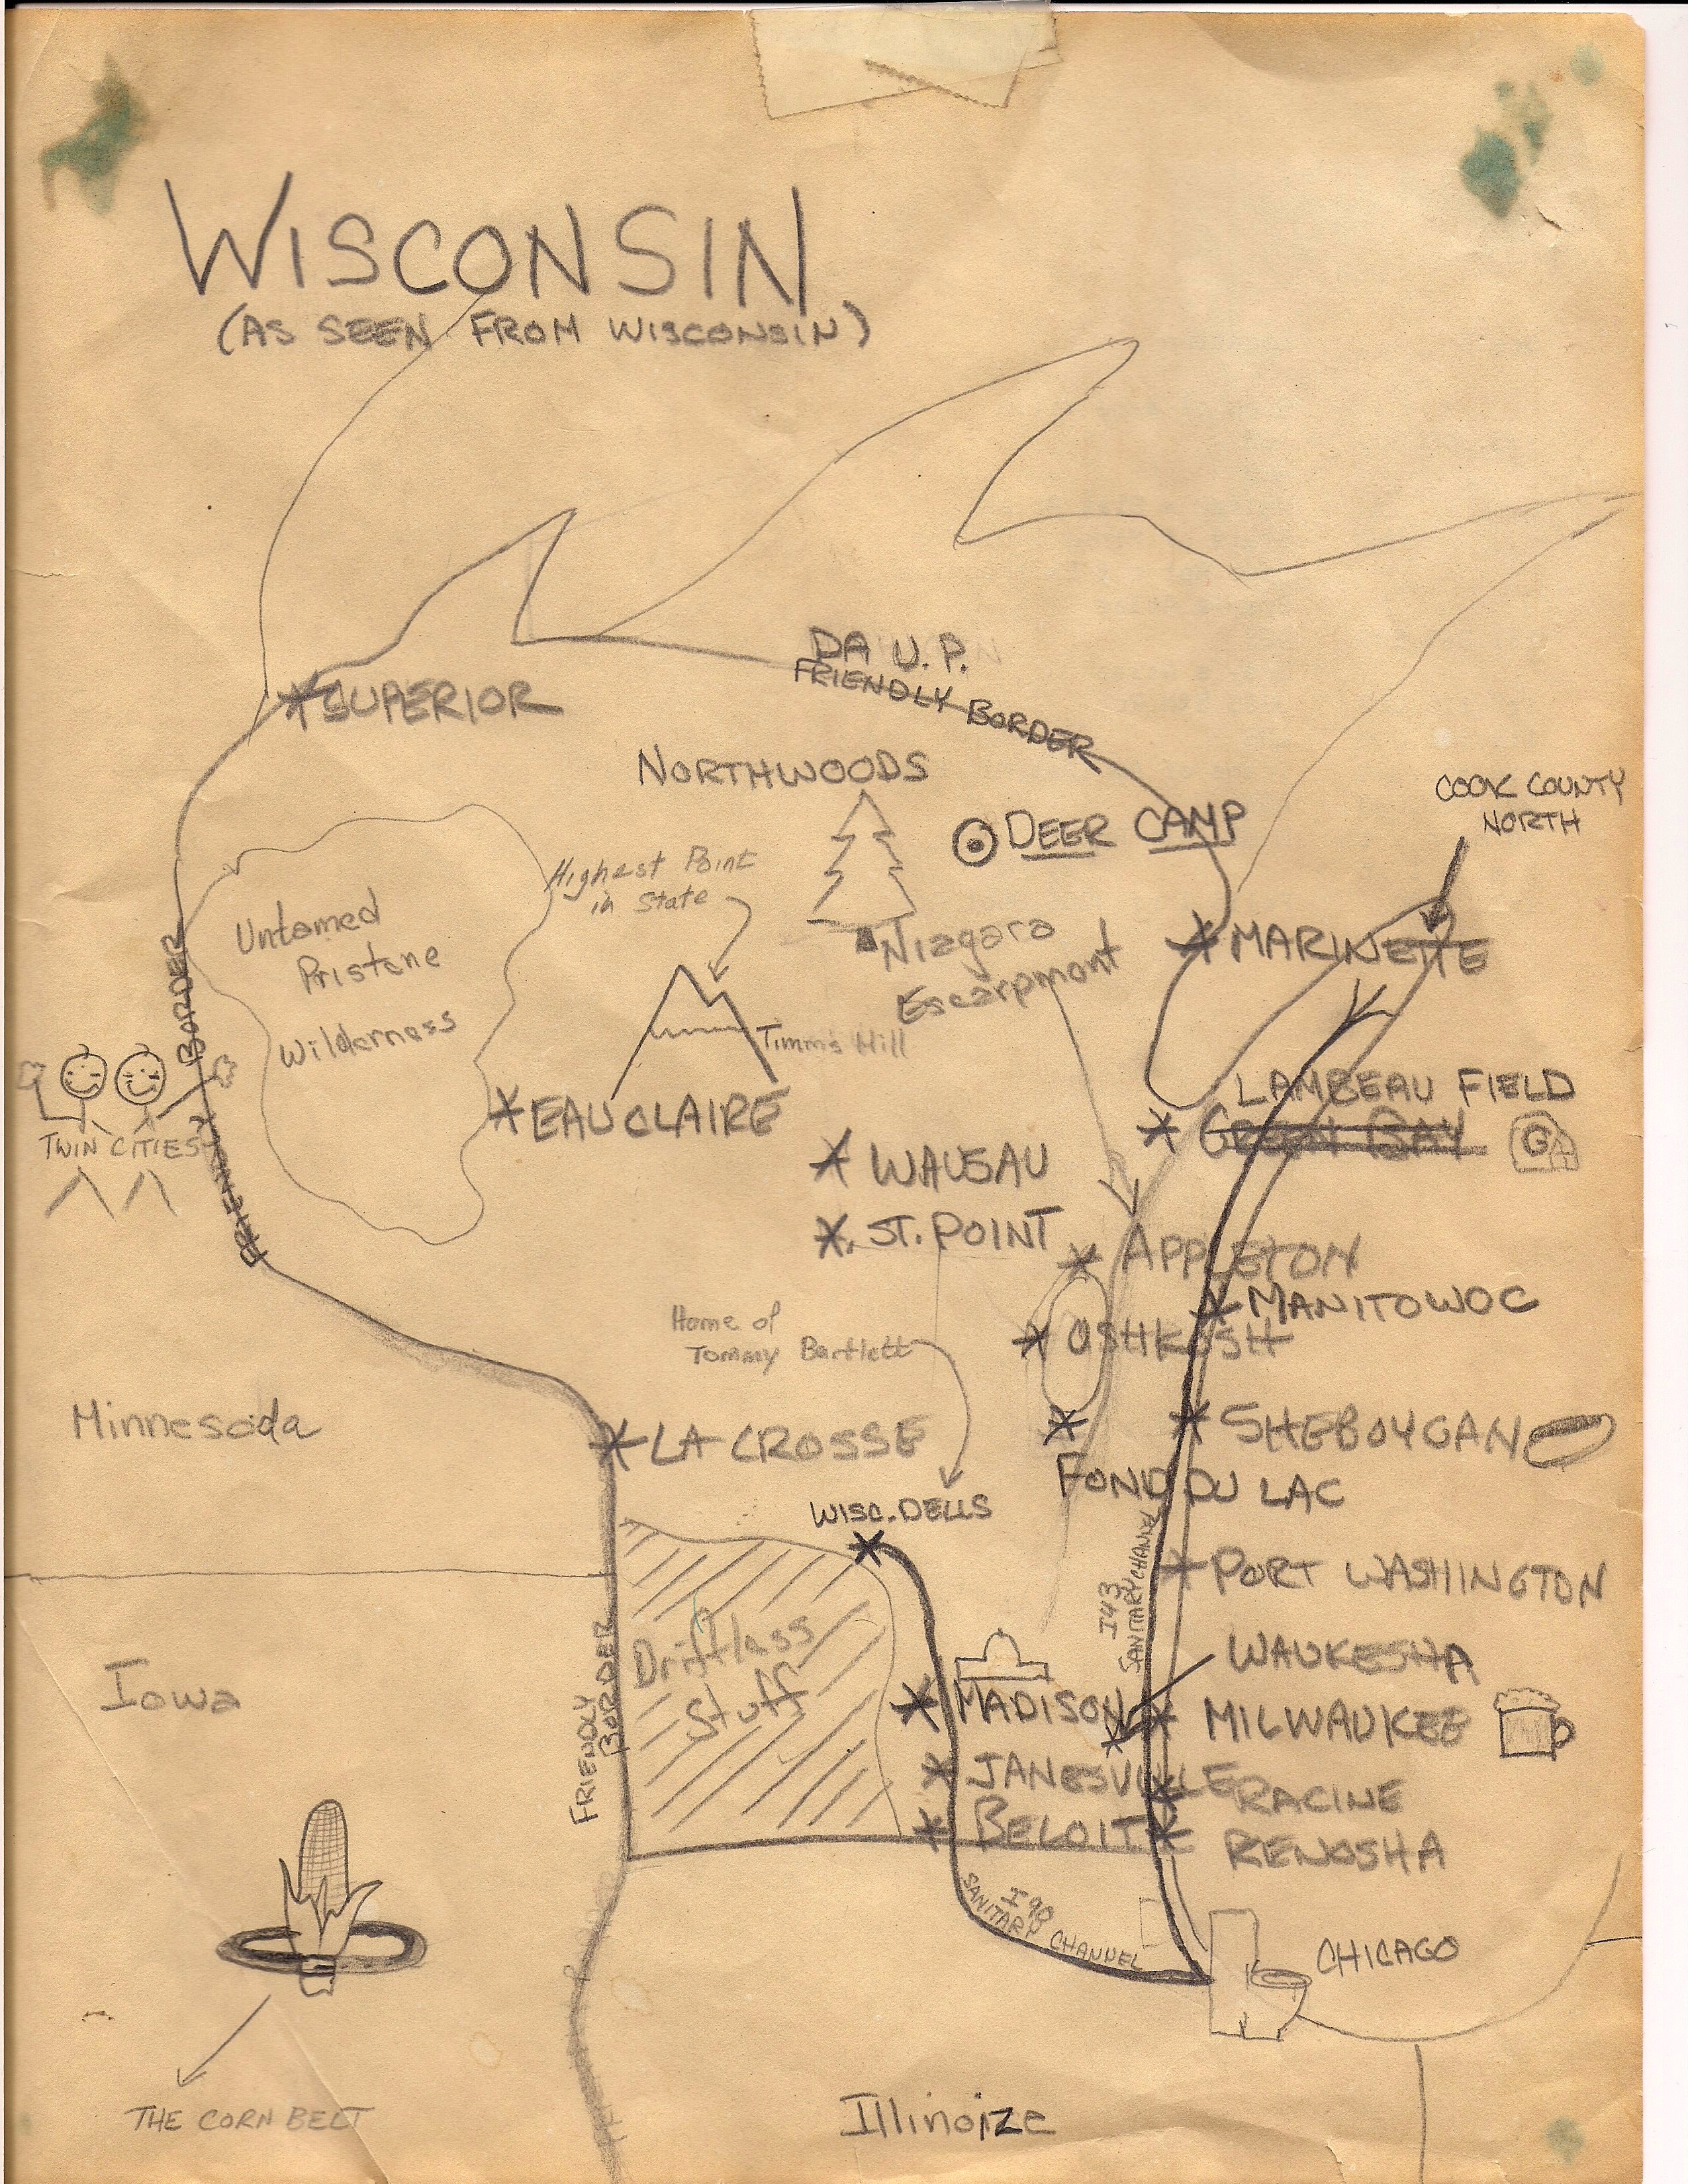 WISCONSIN
(AS SEEN FROM WISCONSIN)
DA U.P.
FRIENDLY BORDER
SUPERIOR
NORTHWOODS
COOK COUNTY
NORTH
DEER CAMP
Highest Point
in State
Untamed
Pristene
Wilderness
Niagara
Escarpmont
MARINETTE
Timms Hill
FRIENDLY BORDER
TWIN CITIES
EAU CLAIRE
LAMBEAU FIELD
GREEN BAY
G
WAUSAU
ST. POINT
APPLETON
MANITOWOC
Home of
Tommy Bartlett
OSHKOSH
Minnesoda
LA CROSSE
SHEBOYGAN
FOND DU LAC
WISC. DELLS
I43
SANITARY CHANEL
PORT WASHINGTON
Driftlass
Stuff
Iowa
FRIENDLY
BORDER
WAUKESHA
MADISON
MILWAUKEE
JANESVILLE
RACINE
BELOIT
RENOSHA
I90
SANITARY CHANNEL
CHICAGO
THE CORN BELT
Illinoize